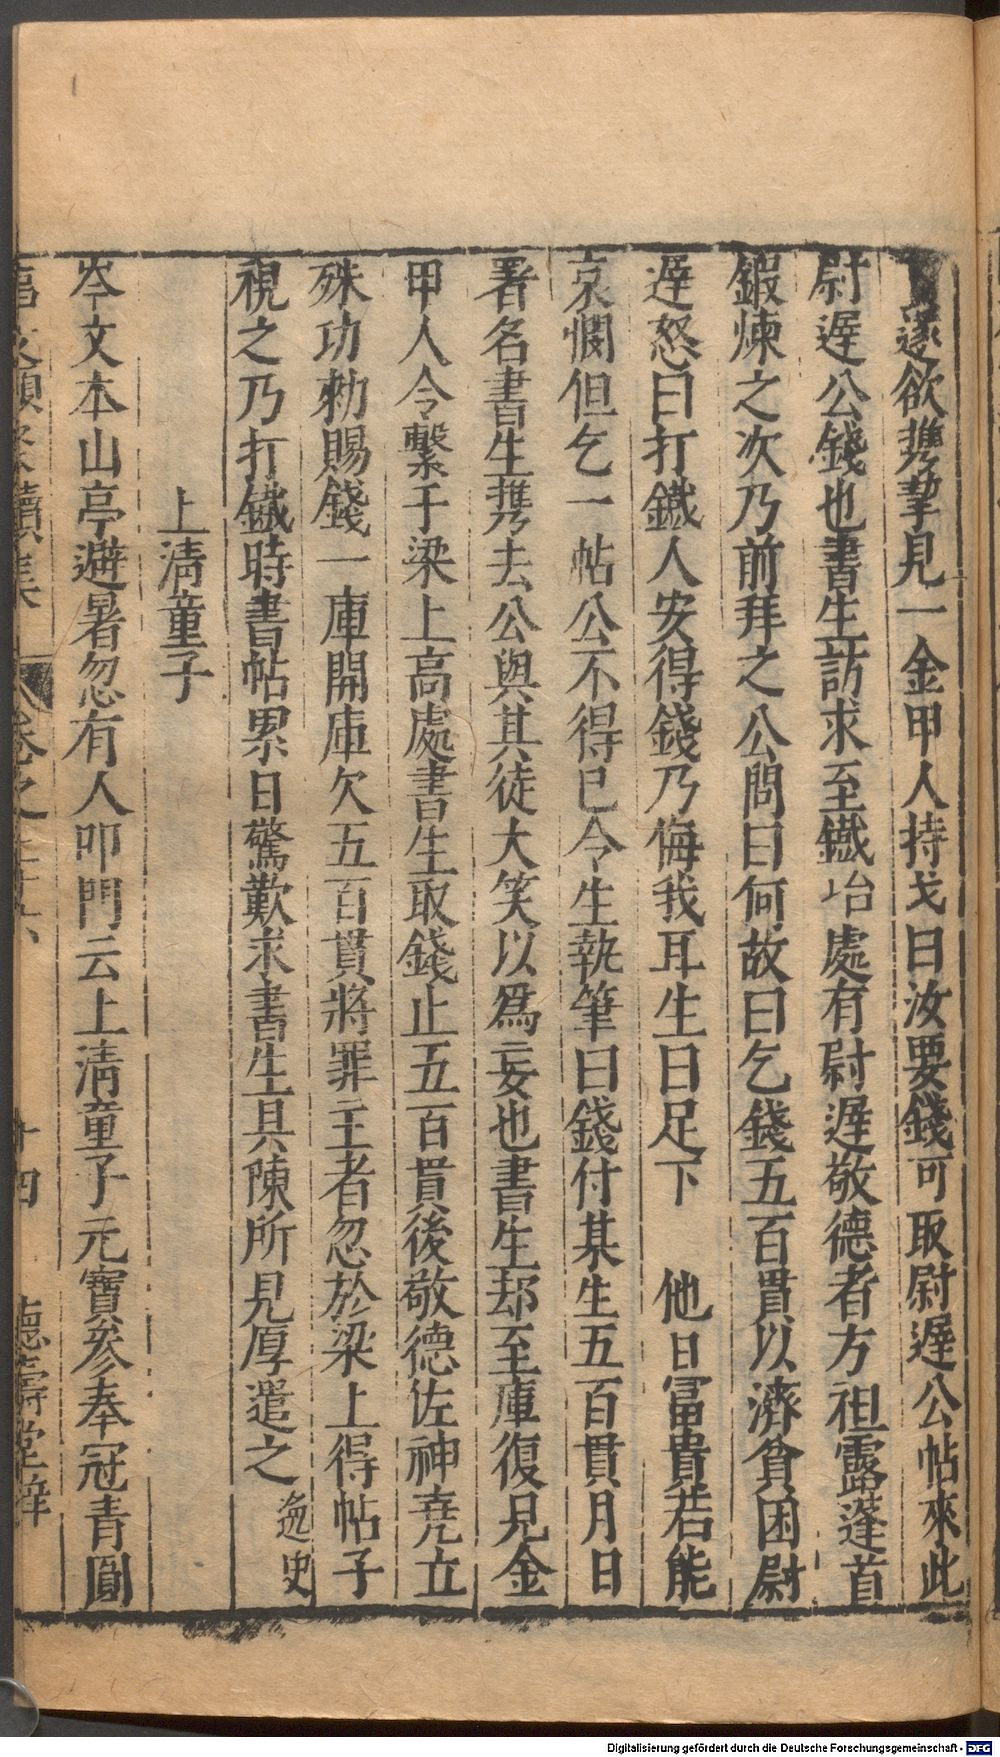 遂欲携挈見一金甲人持戈曰汝要錢可取尉遲公帖來此
尉遲公錢也書生訪求至鐵冶處有尉遲敬德者方袒露蓬首
鍜煉之次乃前拜之公問曰何故曰乞錢五百貫以濟貧困尉
遲怒曰打鐵人安得錢乃侮我耳生曰足下 他日富貴若能
哀憫但乞一帖公不得已令生執筆曰錢付某生五百貫月日
署名書生携去公與其徒大笑以爲妄也書生却至庫復見金
甲人令繫于梁上高處書生取錢止五百貫後敬德佐神堯立
殊功勑賜錢一庫開庫欠五百貫將罪主者忽於梁上得帖子
視之乃打鐵時書帖累日驚歎求書生具陳所見厚遣之 逸史
上清童子
岑文本山亭避暑忽有人叩門云上清童子元寶參奉冠青圓
卷之 十四 德壽堂梓
Digitalisierung gefördert durch die Deutsche Forschungsgemeinschaft - DFG